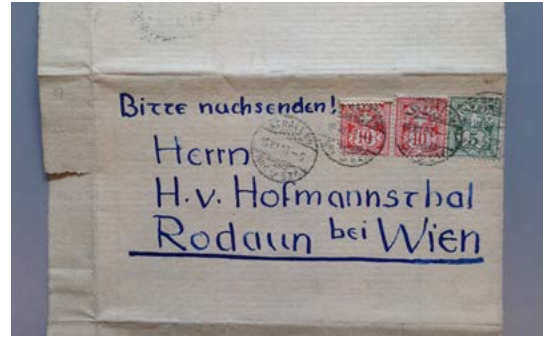 Bitte nachsenden!
10 10 5
Herrn
H. v. Hofmannsthal
Rodaun bei Wien